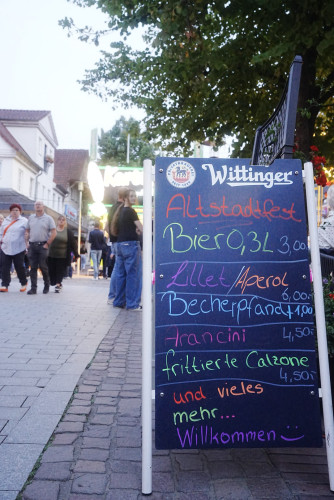 Wittinger
Altstadtfest
Bier 0,3L 3,00
Lillet/Aperol
6,00
Becherpfand +1,00
Arancini 4,50
frittierte Calzone
4,50
und vieles
mehr...
Willkommen